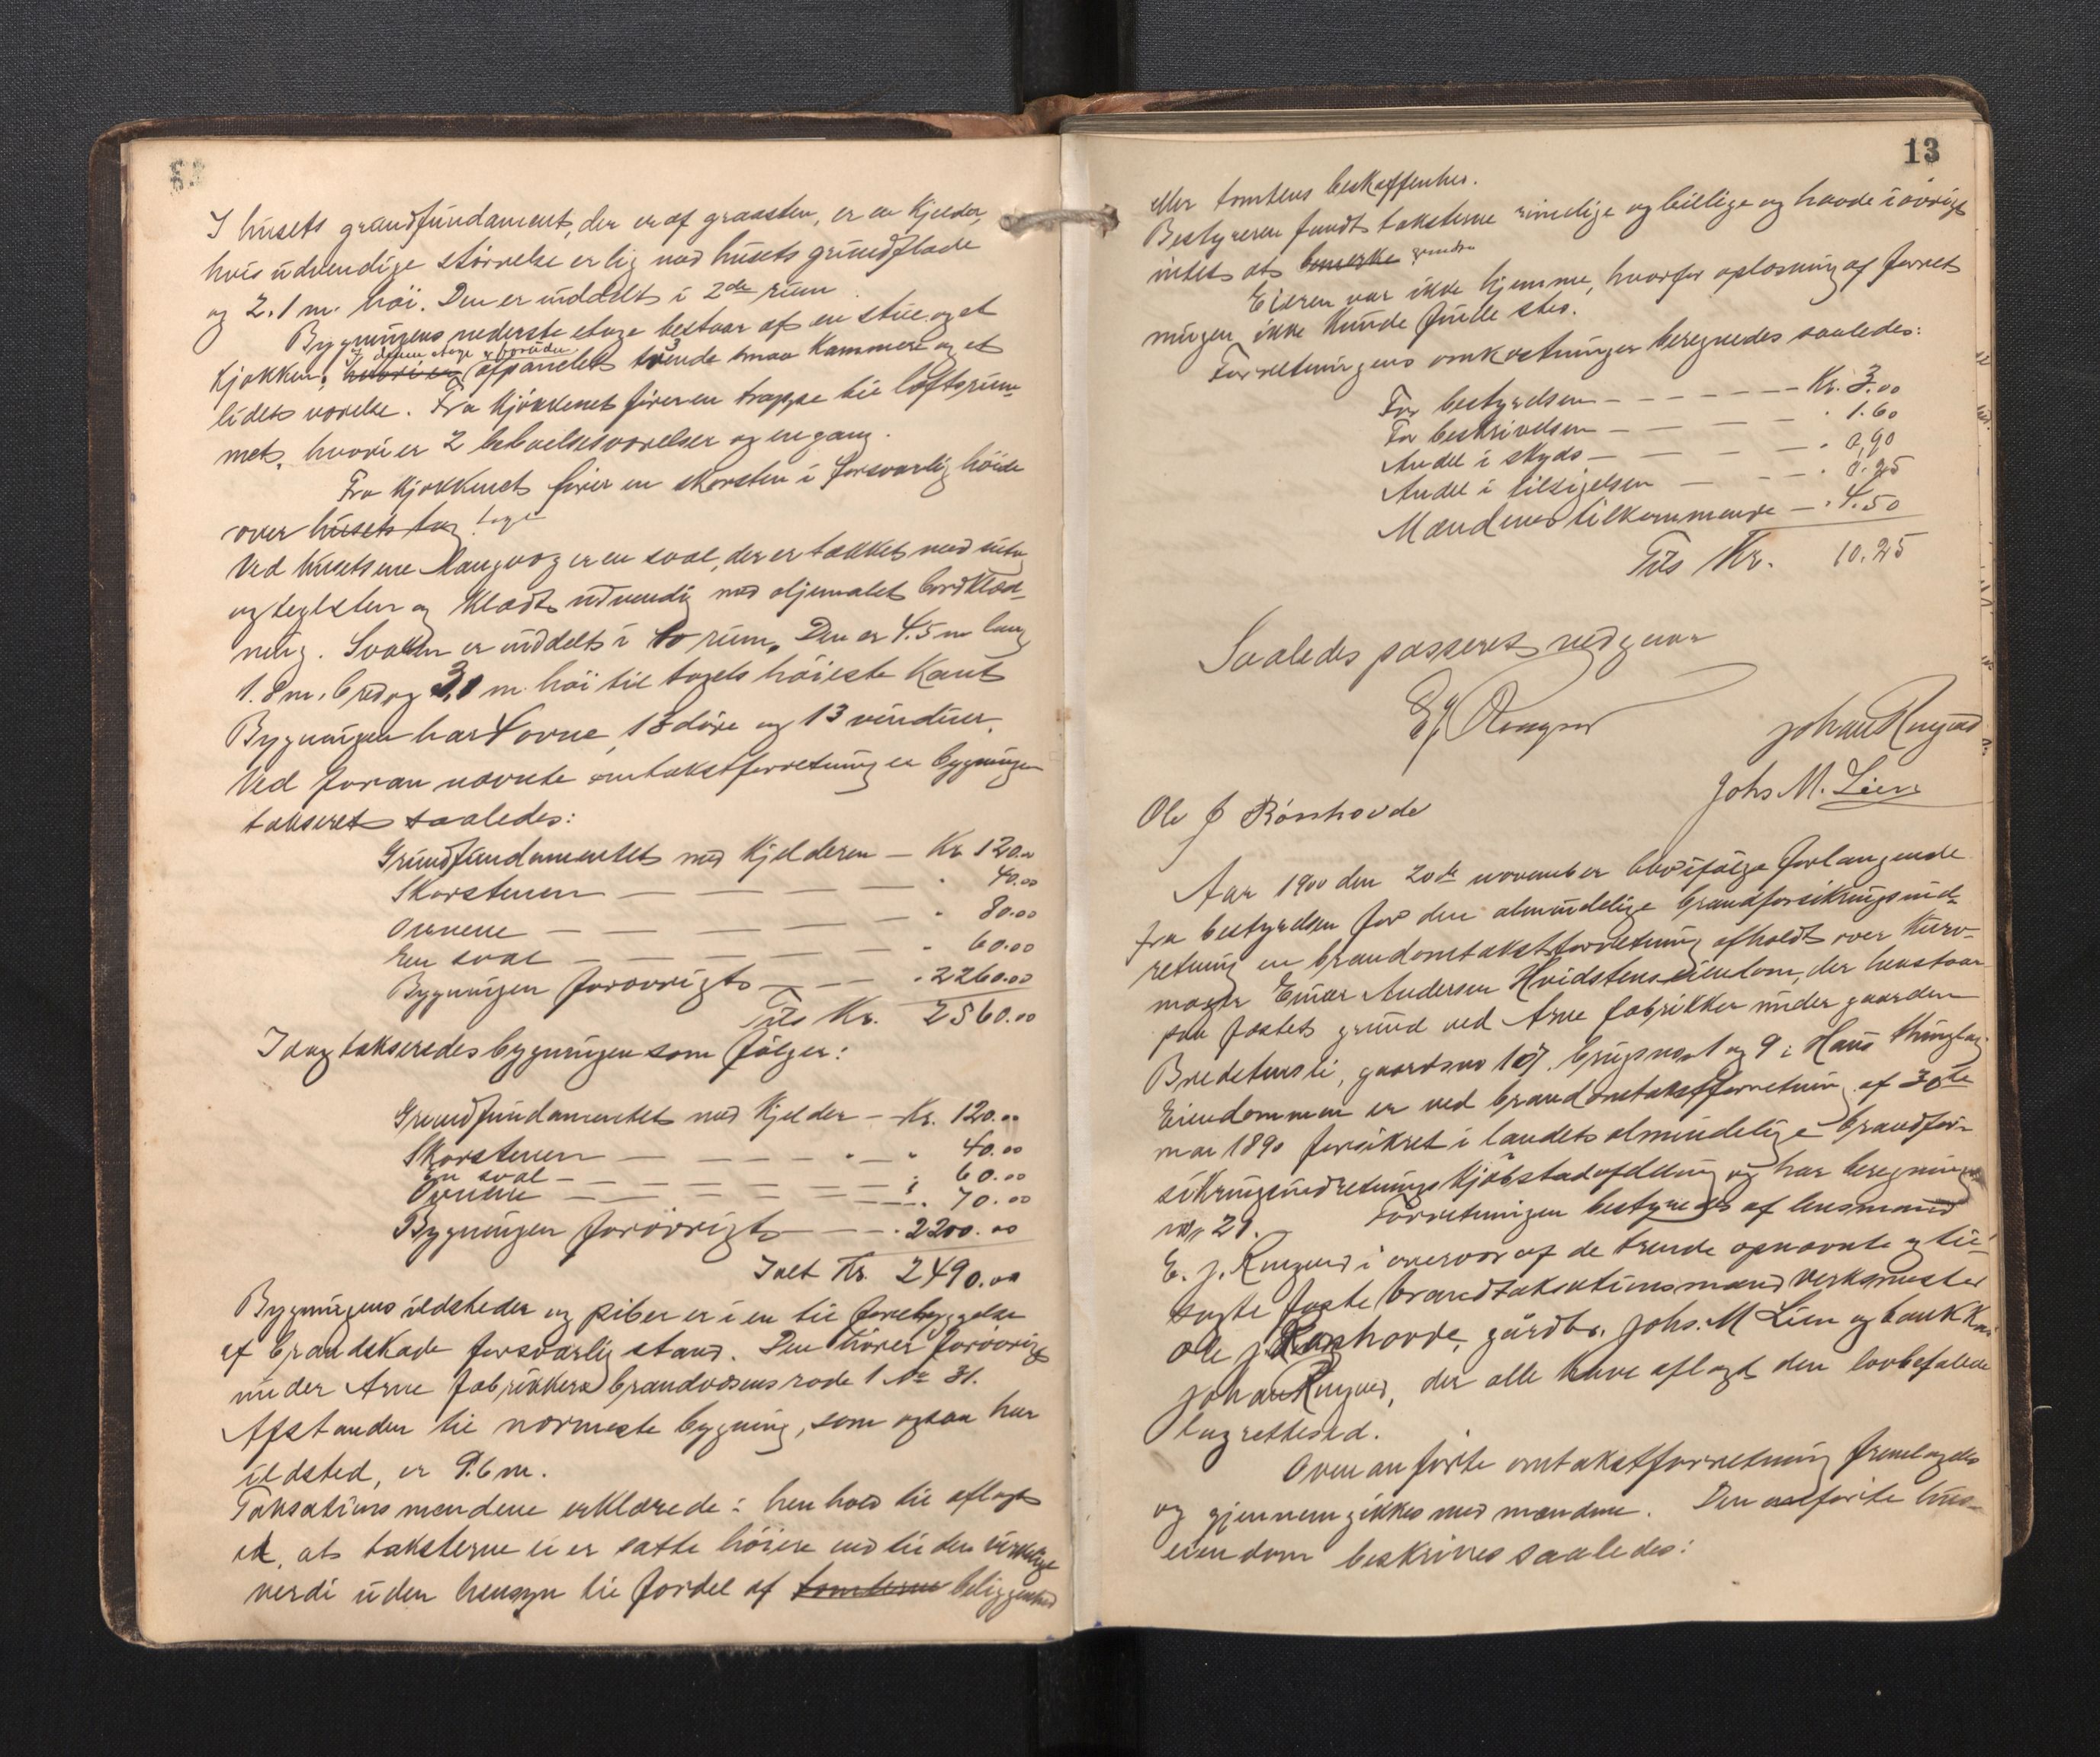 I husets grundfundament, der er af graasten, er en Kjelder,
hvis udvendige størrelse er lig med husets grundflade
og 2.1 m. høi. Den er inddelt i 2de rum.
Bygningens nederste etage bestaar af en stue og et
I denne etage er foruden
Kjøkken, hvori en afpanelet tvende smaa Kammere og et
lidet værelse. Fra Kjøkkenet fører en trappe til loftsrum-
met, hvori er 2 beboelsesværelser og en gang.
Fra Kjøkkenet fører en skorsten i forsvarlig høide
over husets tag taget
Ved husets ene langvæg er en sval, der er tækket med
og teglsten og klædt udvendig med oljemalet bordklæd-
ning. Svalen er inddelt i to rum. Den er 4.5 m lang
1.8 m. bred og 3,1 m. høi til tagets høieste Kant
Bygningen har 4 ovne, 13 døre og 13 vinduer.
Ved foran nævnte omtakstforretning er bygningen
takseret saaledes:
Grundfundamentet med Kjelderen — Kr. 120.00
Skorstenen — 40.00
Ovnene — 80.00
En sval — 60.00
Bygningen forøvrigt — 2260.00
Tils Kr. 2560.00
Idag takseredes bygningen som følger:
Grundfundamentet med Kjelder — Kr. 120.00
Skorstenen — 40.00
En sval — 60.00
Ovnene — 70.00
Bygningen forøvrigt — 2200.00
Ialt Kr. 2490.00
Bygningens ildsteder og piber er i en til forebyggelse
af brandskade forsvarlig stand. Den hører forøvrigt
under Arne fabrikkers brandvæsens rode 1 No 31.
Afstanden til nærmeste bygning, som ogsaa har
ildsted, er 9.6 m.
Taksationsmændene erklærede i henhold til aflagt
ed, at taksterne ei er satte høiere end til den virkelige
verdi uden hensyn til fordel af tomterne beliggenhed
13
eller tomtens beskaffenhed.
Bestyreren fandt taksterne rimelige og billige og havde iøvrigt
intet at bemerke
Eieren var ikke hjemme, hvorfor oplæsning af forret
ningen ikke kunde finde sted.
Forretningens omkostninger beregnedes saaledes:
For bestyrelsen — Kr. 3.00
For beskrivelsen — 1.60
Andel i skyds — 0,90
Andel i tilsigelsen — 0.25
Mændenes tilkommende — 4.50
Tils Kr. 10.25
Saaledes passeret vidner
Johan Ringard
Johs M. Lien
Ole J Rønhovde
Aar 1900 den 20de november blev ifølge forlangende
fra bestyrelsen for den almindelige brandforsikringsind-
retning en brandomtakstforretning afholdt over Kurv-
mager Einar Andersen Hvidstens eiendom, der henstaar
paa fæstet grund ved Arne fabrikker under gaarden
Bredetensli, gaardsno 107. brugsno. 1 og 9 i Haus thinglag
Eiendommen er ved brandomtakstforretning af 30te
mai 1890 forsikret i landets almindelige brandfor-
sikringsindretnings Kjøbstadafdeling og har beregnings
no. 21. Forretningen bestyredes af lensmand
E. J. Ringard i overvær af de trende opnævnte og til-
sagte faste brandtaksationsmænd verksmester
Ole J. Rønhovde, gårdbr. Johs. M Lien og
Johan Ringard, der alle have aflagt den lovbefalede
lagretteed.
Ovenanførte omtakstforretning fremlagdes
og gjennemgikkes med mændene. Den anførte hus-
eiendom beskrives saaledes: